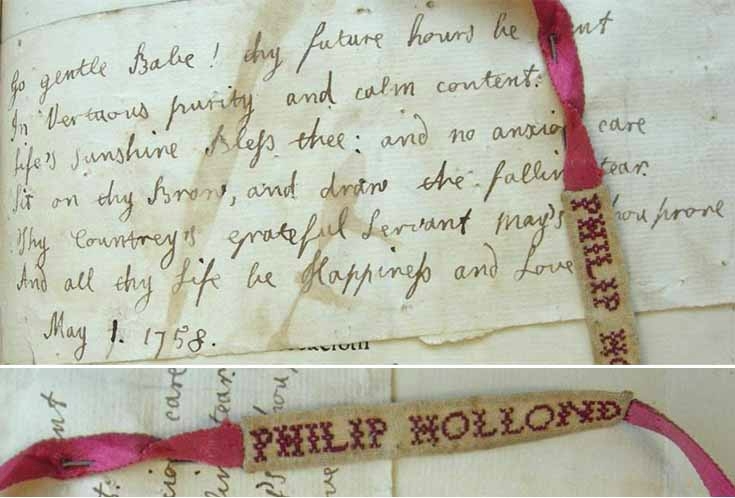 Go gentle Babe! thy future hours be nt
In Vertuous purity and calm content.
Life's Sunshine Bless thee: and no anxio care
Sit on thy Brow, and draw the fallin tear.
Thy Countrey's grateful Servant May's hou prove
And all thy Life be Happiness and Love
May 1. 1758.
PHILIP HO
PHILIP HOLLOND